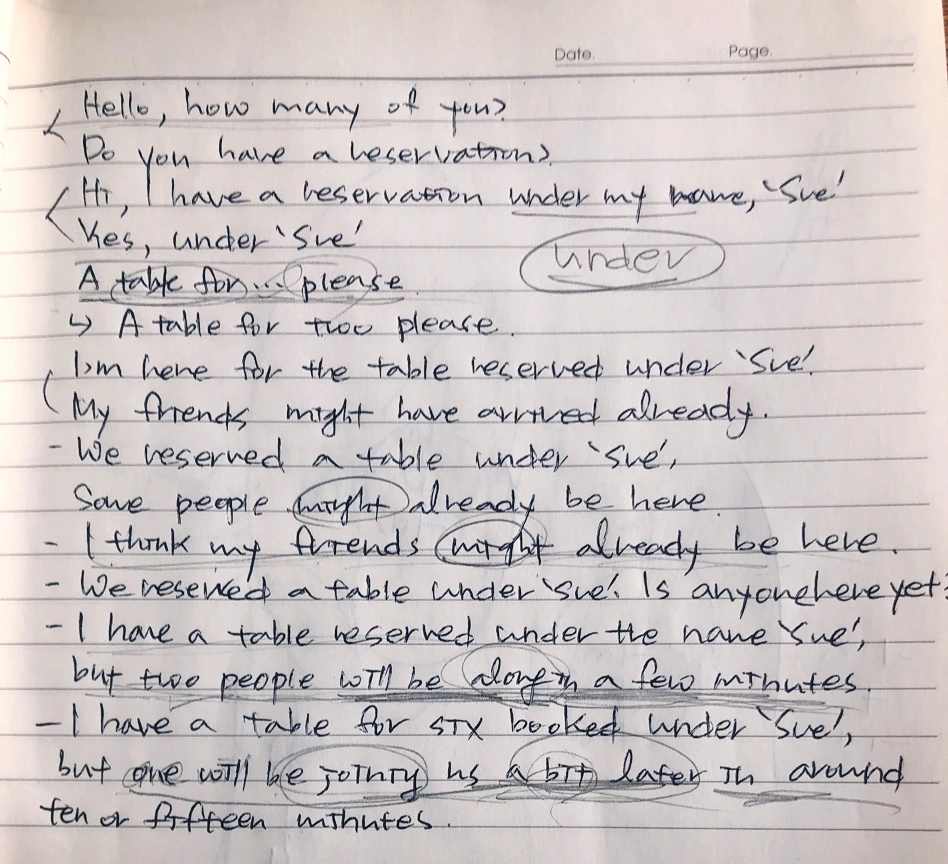 Date.
Page.
Hello, how many of you?
Do you have a reservation?
Hi, I have a reservation under my name, 'Sue'
Yes, under 'Sue'
under
A table for... please.
↳ A table for two please.
I'm here for the table reserved under 'Sue'.
My friends might have arrived already.
- We reserved a table under 'Sue',
Some people might already be here.
- I think my friends might already be here.
- We reserved a table under 'Sue'. Is anyone here yet?
- I have a table reserved under the name 'Sue',
but two people will be along in a few minutes.
- I have a table for six booked under 'Sue',
but one will be joining us a bit later in around
ten or fifteen minutes.